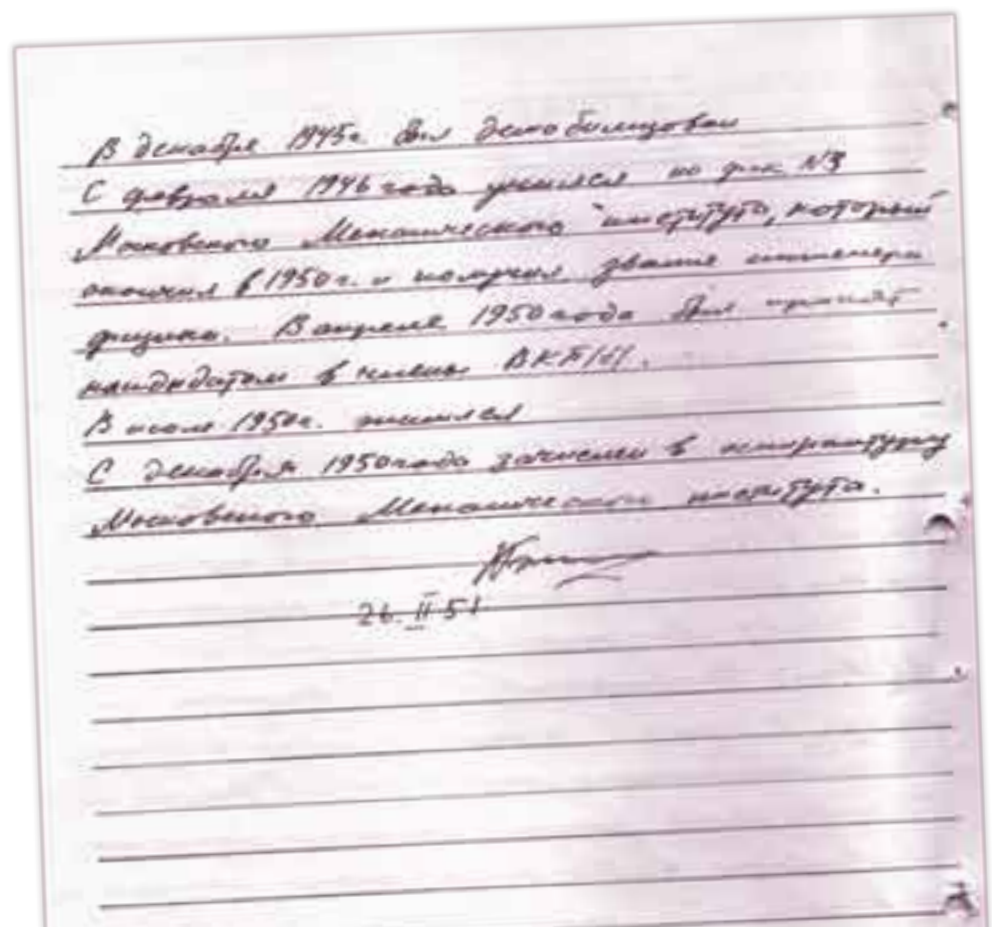 В декабре 1945г. был демобилизован
С февраля 1946 года учился на фак. №3
Московского Механического института, который
окончил в 1950г. и получил звание инженера
физика. В апреле 1950 года был принят
кандидатом в члены ВКП/б/.
В июле 1950г. женился
С декабря 1950 года зачислен в аспирантуру
Московского Механического института.
26. II 51